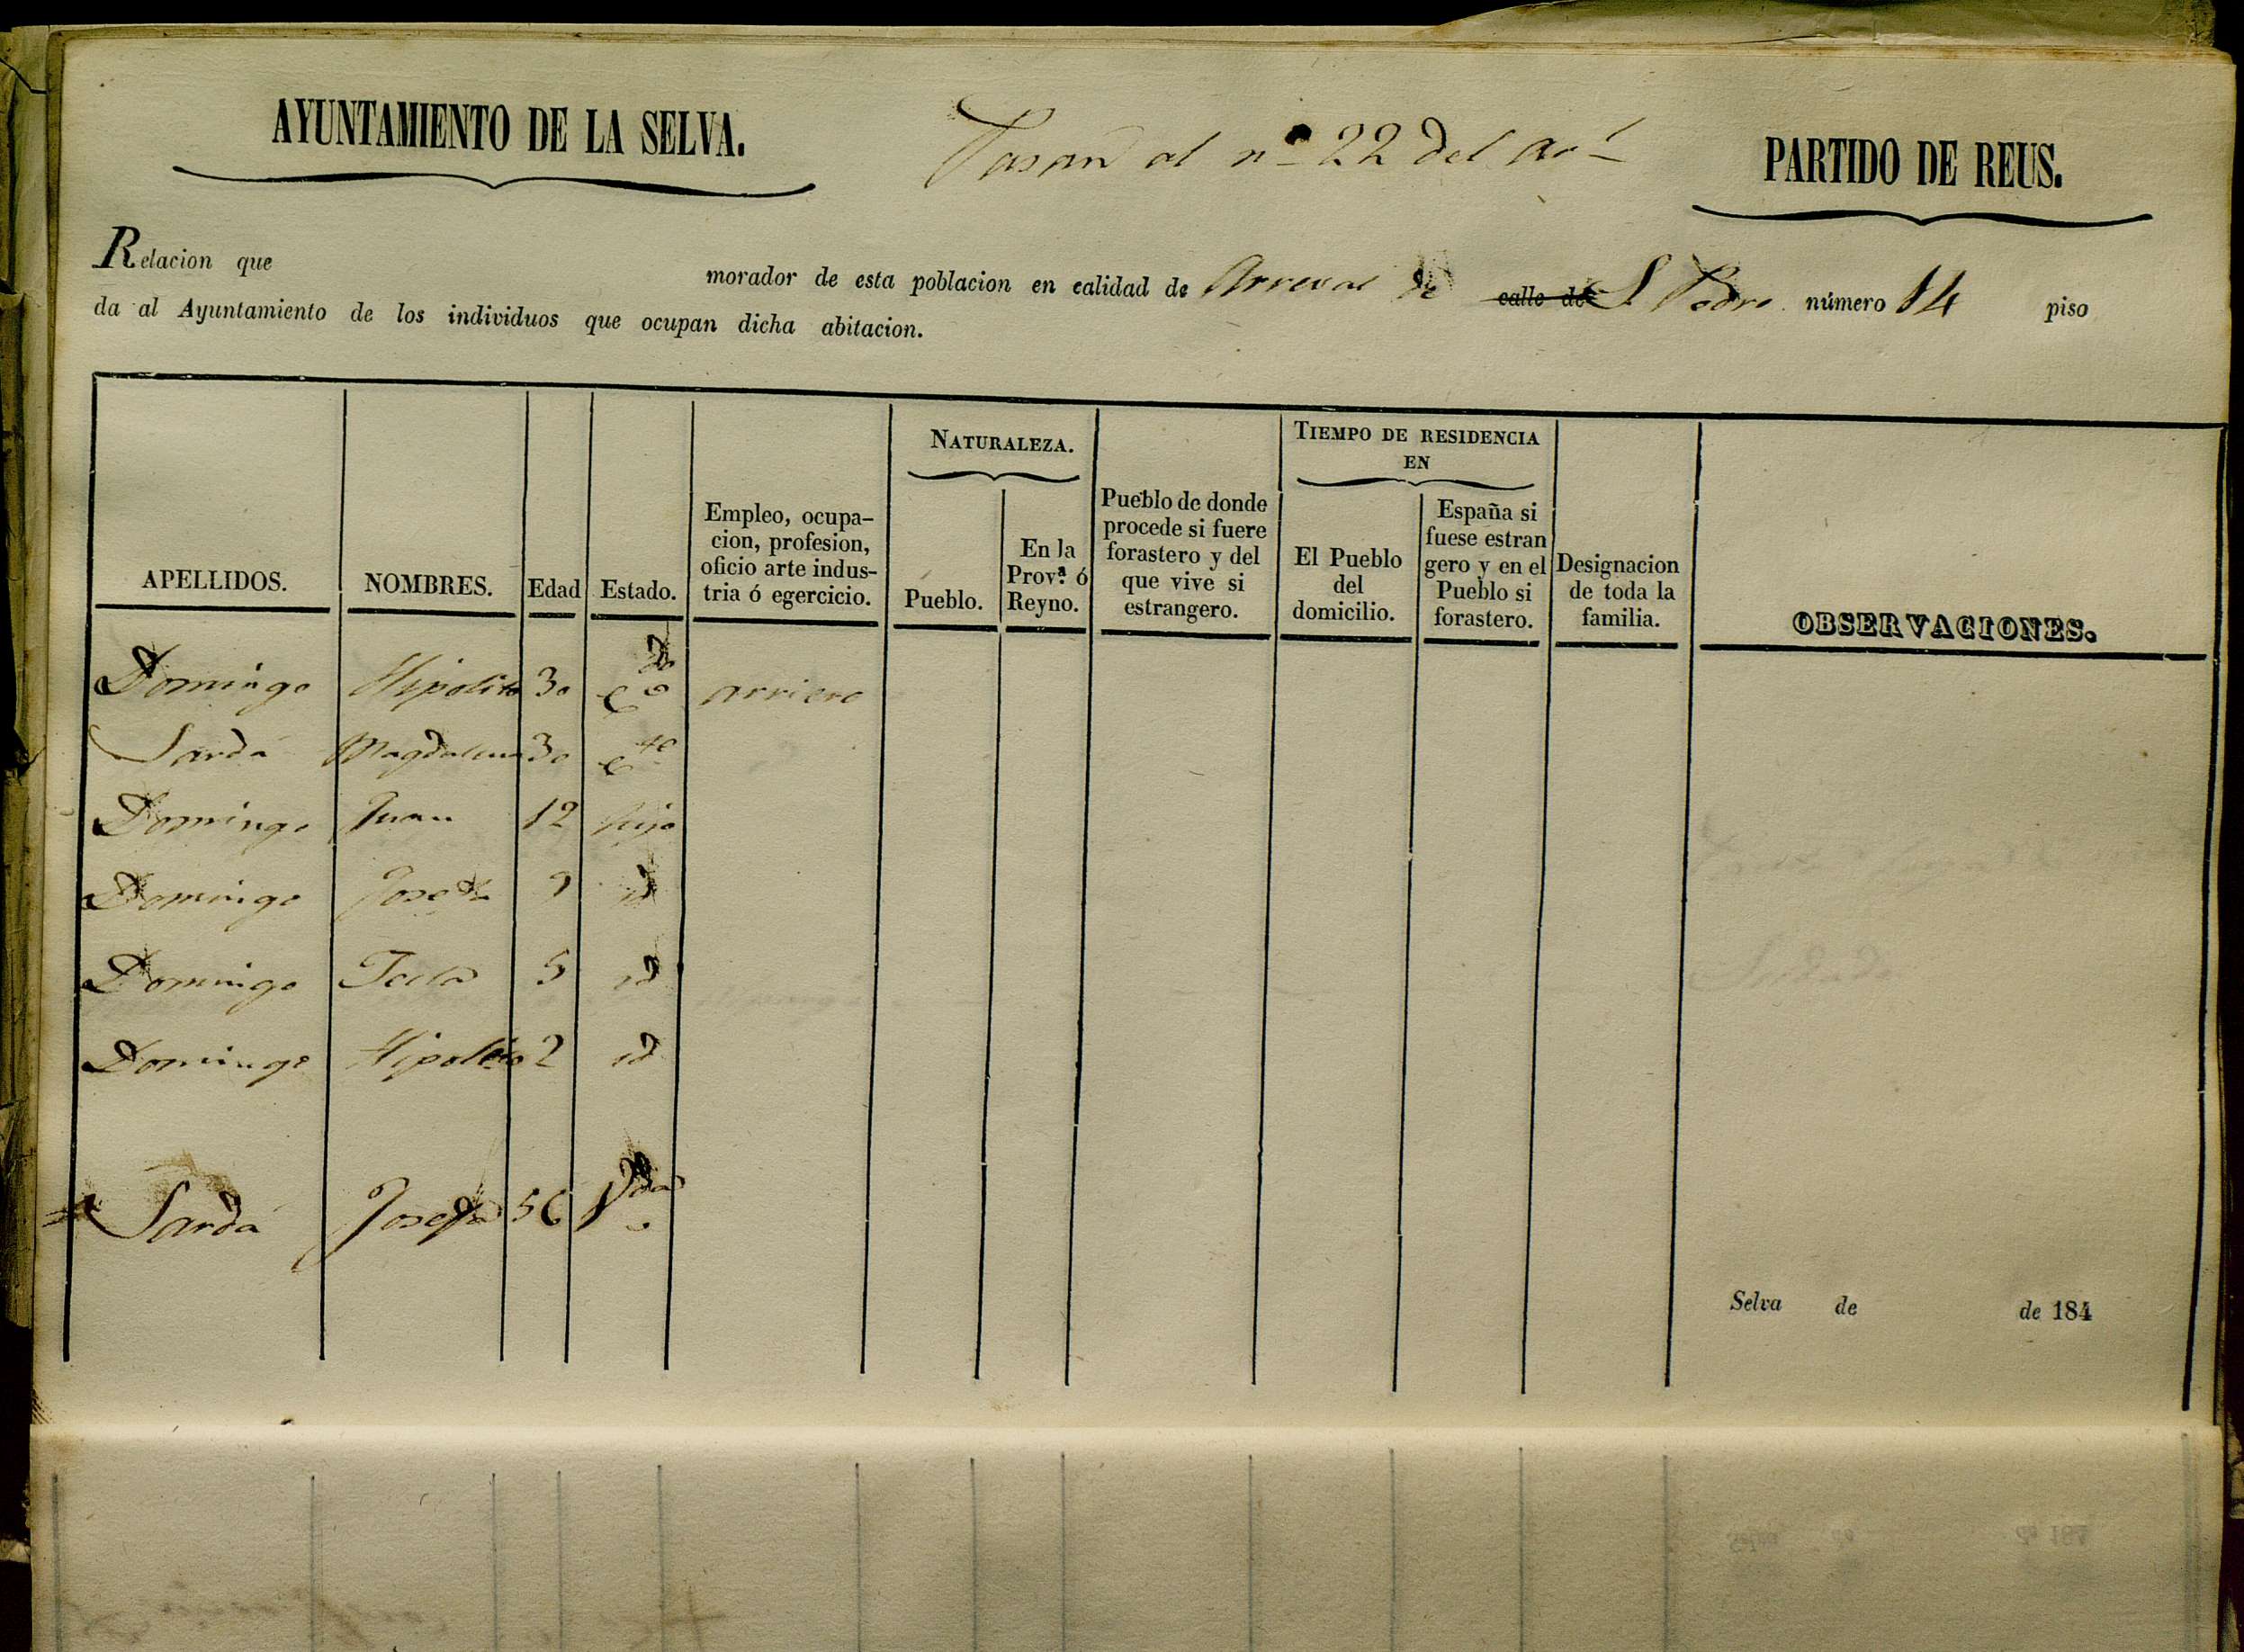 AYUNTAMIENTO DE LA SELVA.
Pasan al nº 22 del
PARTIDO DE REUS.
Relacion que morador de esta poblacion en calidad de Arreval de calle de S Pedro número 14 piso
da al Ayuntamiento de los individuos que ocupan dicha abitacion.
APELLIDOS. NOMBRES. Edad Estado. Empleo, ocupa-
cion, profesion,
oficio arte indus-
tria ó egercicio.
NATURALEZA.
Pueblo. En la
Prov.ª ó
Reyno.
Pueblo de donde
procede si fuere
forastero y del
que vive si
estrangero.
TIEMPO DE RESIDENCIA
EN
El Pueblo
del
domicilio.
España si
fuese estran
gero y en el
Pueblo si
forastero.
Designacion
de toda la
familia.
OBSERVACIONES.
Domingo Hipolito 30 Cdo arriero
Sardá Magdalena 30
Domingo Juan 12 hijo
Domingo Josefa 9 id
Domingo Tecla 5 id
Domingo Hipolito 2 id
Sardá Josefa 56 Vda
Selva de de 184